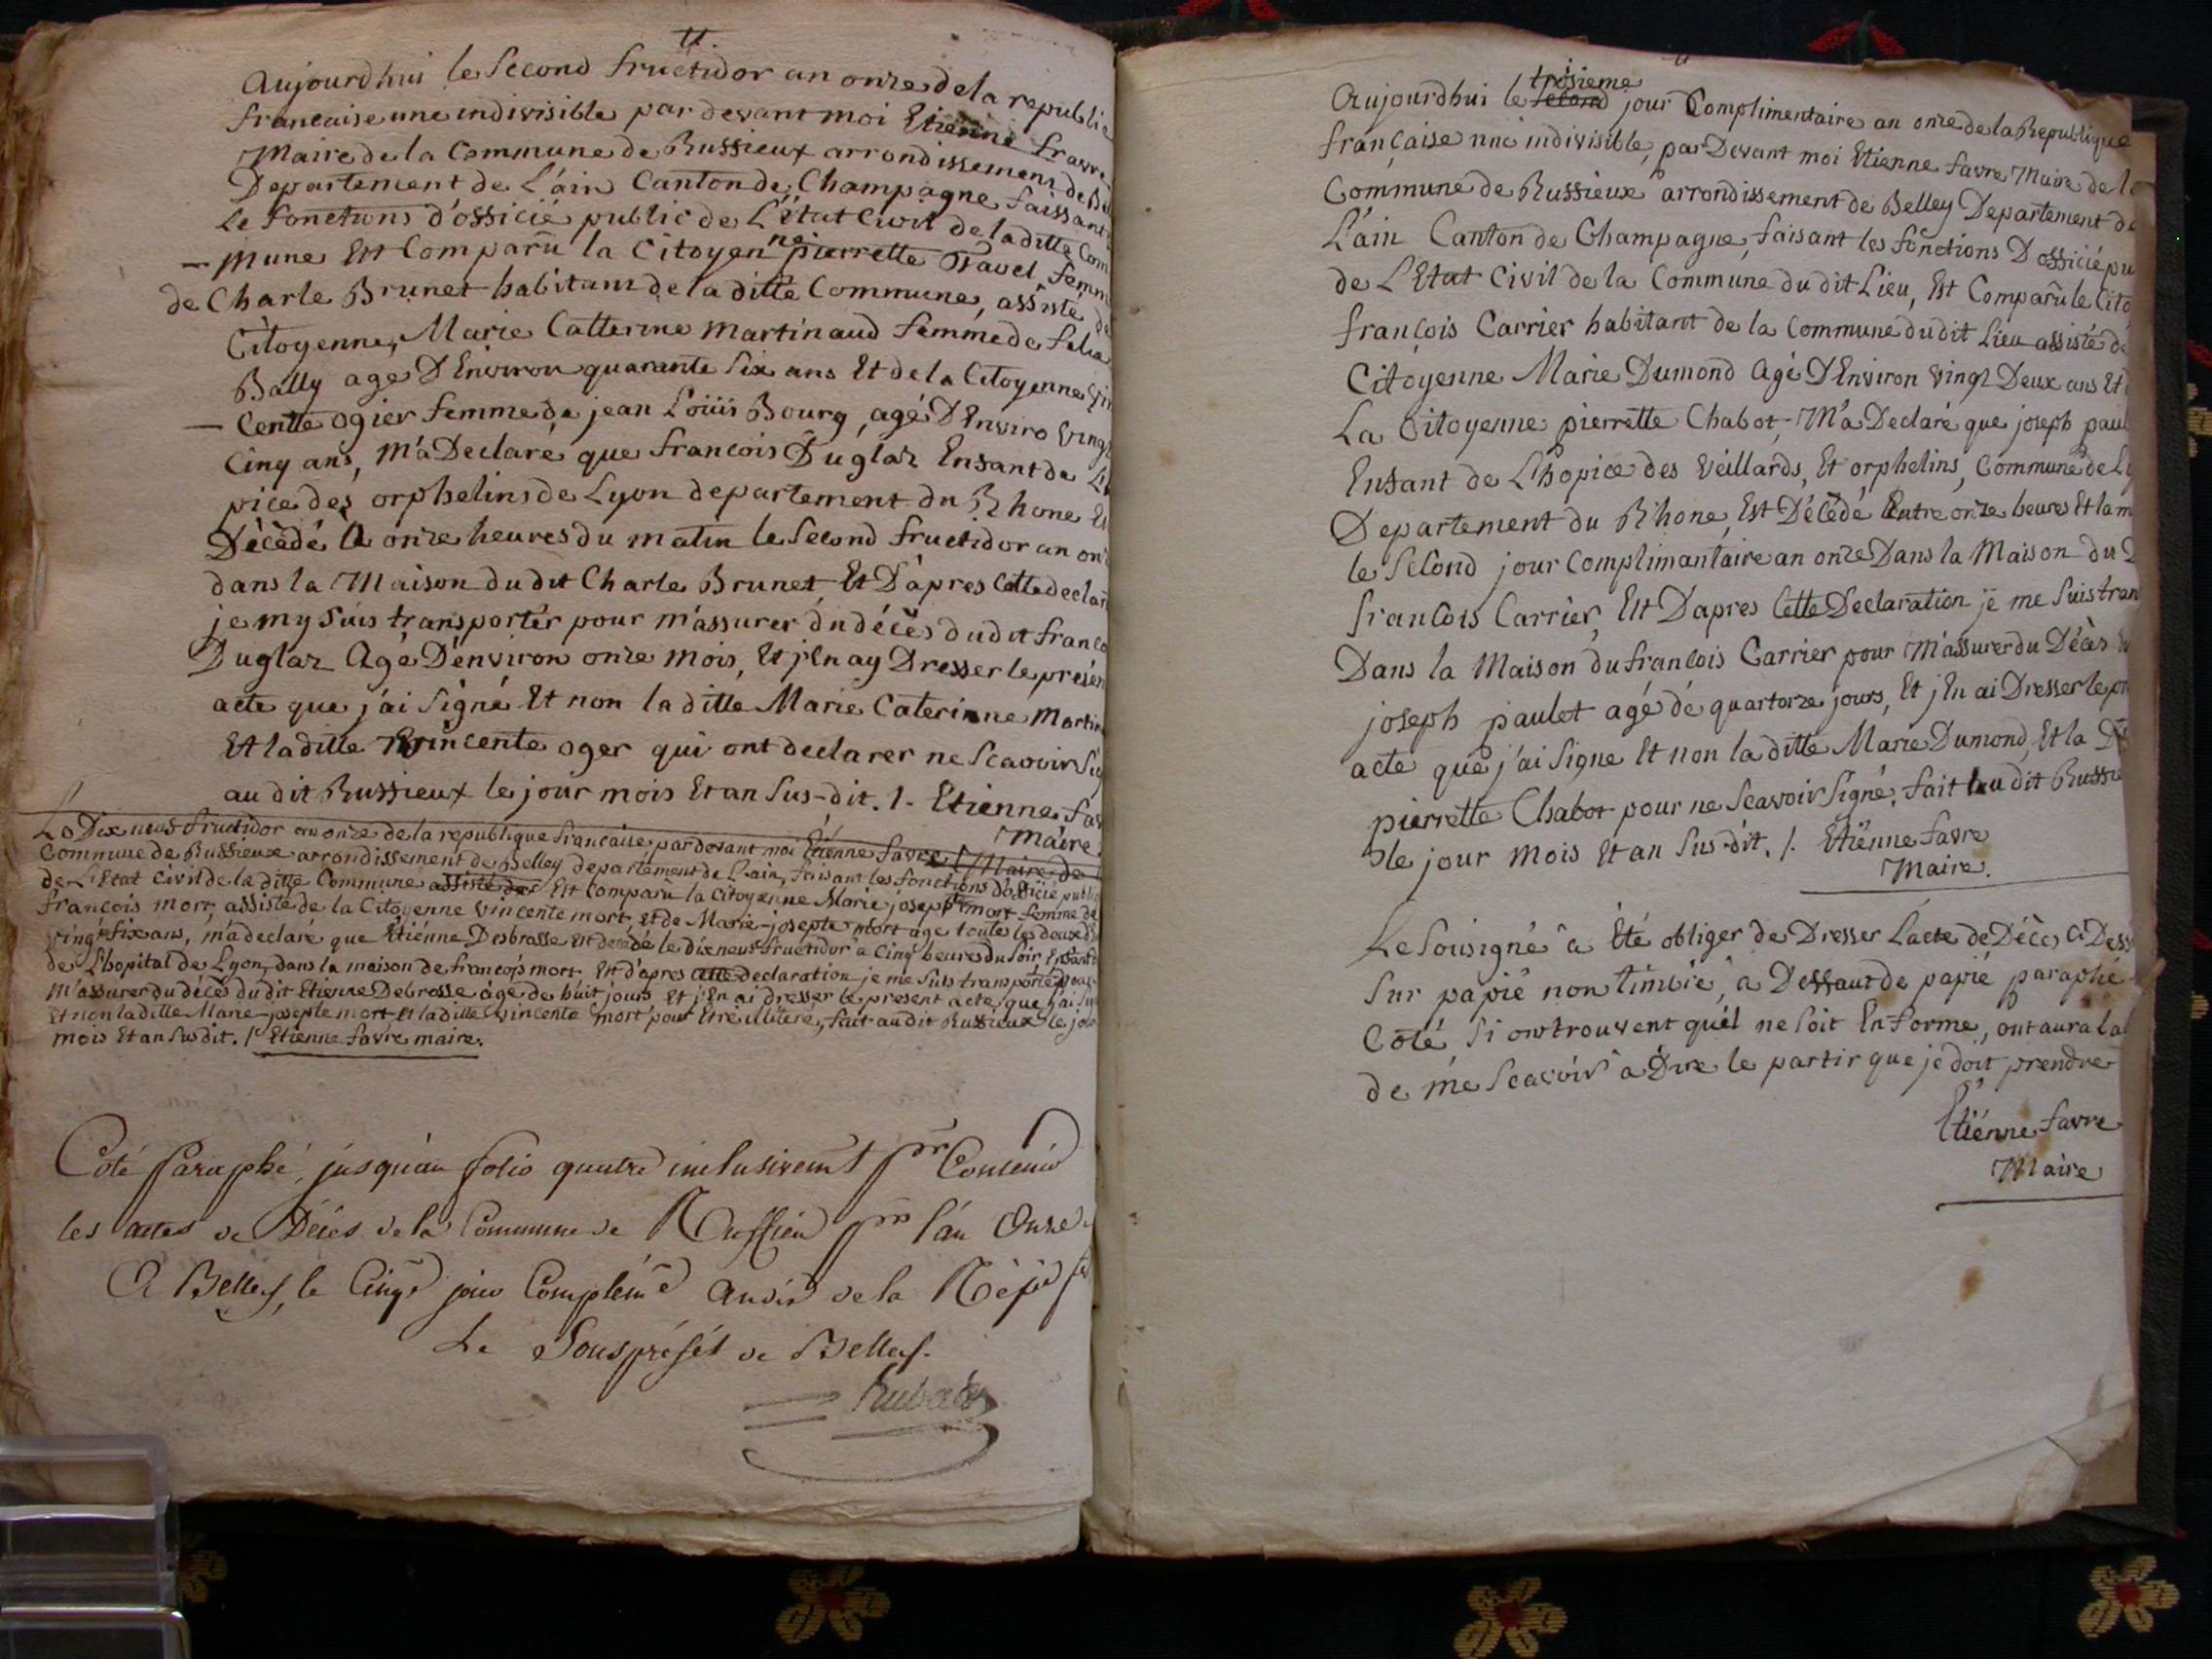 Aujourdhui le Second fructidor an onze de la republi
francaise une indivisible par devant moi Etienne favre
Maire de la Commune de Russieux arrondissement de Bel
Departement de L'ain Canton de Champagne faissant
Le fonctions d'officié public de L'état Civil de la ditte Com
- mune Est Comparu la Citoyenne pierrette Pavel femm
de Charle Brunet habitant de la ditte Commune, assisté de
Citoyenne, Marie Catterine Martinaud femme de felix
Bally age D'Environ quarante Six ans Et de la Citoyenne Vin
- Cente ogier femme de jean Loüis Bourg, agé D'Enviro Vingt
Cinq ans, M'a Declaré que francois Duglaz Enfant de L'h
pice des orphelins de Lyon departement du Rhone Es
Décédé A onze heures du matin le Second fructidor an onz
dans la Maison du dit Charle Brunet, Et D'apres Cette declar
je my Suis transporter pour m'assurer du décès du dit franco
Duglaz Agé D'environ onze Mois, Et j'En ay Dresser le présen
acte que j'ai Signé Et non la ditte Marie Caterinne Martin
Et la ditte Vincente oger qui ont declarer ne Scavoir Sig
au dit Russieux le jour mois Et an Sus-dit. /. Etienne fav
Maire.
Le Dix neuf fructidor an onze de la republique francaise, par devant moi Etienne favre Maire de
Commune de Russieux arrondissement de Belley departement de L'ain, faisant les fonctions D'officié public
de L'Etat Civil de la ditte Commune assisté de Est Comparu la Citoyenne Marie josepte mort femme de
francois mort, assisté de la Citoyenne Vincente mort, et de Marie-josepte mort age toute les deux d'E
Vingt Six ans, m'a declare que Etiénne Desbrasse Est decédé le dix neuf fructidor a Cinq heures du Soir Enfant
de L'hopital de Lyon, dans la maison de francois mort Et d'apres cette declaration je me Suis transporté pour
M'assurer du décès du dit Etienne Debrosse agé de huit jours, Et j'En ai dresser le present acte que j'ai Si
Et non la ditte Marie-josepte mort Et la ditte Vincente mort pour Etre illitere, fait au dit Russieux le jour
mois Et an Susdit. /. Etienne favre maire.
Coté Paraphé jusqu'au folio quatre inclusivemt pr Contenir
les actes de Décès de la Commune de Ruffieu pr l'an Onze.
A Belley, le Cinqe jour Complémre an dix de la Répe fse
Le Souspréfét de Belley.
Aujourdhui le troisieme second jour Complimentaire an onze de la Republique
française une indivisible, par Devant moi Etienne favre Maire de la
Commune de Russieux arrondissement de Belley Departement de
L'ain Canton de Champagne, faisant les fonctions D'officié pu
de L'Etat Civil de la Commune du dit Lieu, Est Comparu le Cito
françois Carrier habitant de la Commune du dit Lieu assisté de
Citoyenne Marie Dumond Agé D'Environ Vingt Deux ans Et
La Citoyenne pierrette Chabot, M'a Declaré que joseph paul
Enfant de L'hopice des Veillards, Et orphelins, Commune de Ly
Departement du Rhone, Est Décédé Entre onze heures Et la m
le Second jour Complimantaire an onze Dans la Maison du D
francois Carrier, Est D'apres Cette Declaration je me Suis tran
Dans la Maison du francois Carrier pour M'assurer du Décès
joseph paulet agé de quartorze jours, Et j'En ai Dresser le pr
acte que j'ai Signe Et non la ditte Marie Dumond, Et la D
pierrette Chabot pour ne Scavoir Signé, fait au dit Russie
le jour Mois Et an Sus-dit. /. Etiënne favre
Maire.
Le Sousigné a Eté obliger de Dresser L'acte de Décès Ci Dess
Sur papié non timbré, a Deffaut de papié paraphé
Coté, Si ont trouvent quél ne Soit En forme, ont aura la
de me Scavoir a Dire le partir que je doit prendre
Etiénne favre
Maire